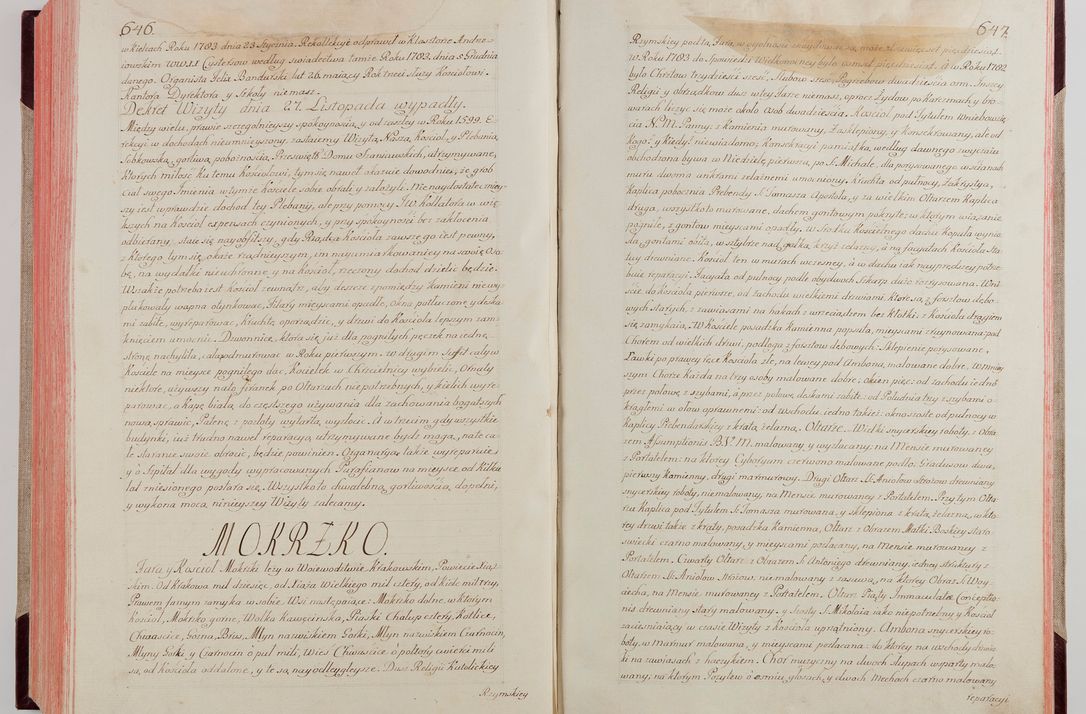 646.
w Kielcach Roku 1783 dnia 23 Stycznia. Rekollekcye odprawił w Klasztorze Andre-
iowskim WW.JJ. Cystersow według swiadectwa tamże Roku 1783. dnia 5 Grudnia
danego. Organista Felix Bandurski, lat 26. maiący Rok trzeci służy Kosciołowi.
Kantora Dyrektora y Szkoły nie masz.
Dekret Wizyty dnia 27. Listopada wypadły.
Między wielu, prawie szczegolnieyszy spokoynością, y od zaszłey w Roku 1599. E-
rekcyi w dochodach nieumnieyszony zastaiemy Wizytą Naszą Kosciół y Plebanią,
Sobkowską, gorliwą pobożnością Przeswięt: Domu Szaniawskich, utrzymywane,
których miłosć ku temu Kosciołowi, tym się nawet okazuie dowodniey, że grob
ciał swego Imienia w tymże Kosciele sobie obrali y założyli. Nie naydostateczniey-
szy iest wprawdzie dochod tey Plebanii, ale przy pomocy J.W. Kollatora w więk-
szych na Kosciół expensach czynionych, y przy spokoyności bez zakłucenia
odbierany, staie się nayobfitszy, gdy Rządca Kościoła zawsze go iest pewny,
z którego tym się okaże rządnieyszym, im nayumiarkowaniey na swoię Oso-
bę, na wydatki nieuchronne, y na Kosciół, rzeczony dochod dzielić będzie.
Wszakże potrzeba iest Kosciół zewnątrz, aby deszcze zpomiędzy kamieni niewy-
plukowały wapna otynkować, Filary mieyscami opadłe, Okna potłuczone y deska-
mi zabite, wyreparować, Kruchtę oporządzić, y drzwi do Kosciola lepszym zam-
knięciem umocnić. Dzwonnicę, ktora się już dla pogniłych pęczek na iednę
stronę nachyliła, całą podmurować w Roku pierwszym. w drugim Suffit cały w
Kosciele na mieysce pogniłego dać, Kosiełek w Chrzcielnicy wybielić, Ornaty
niektore, używszy nato firanek po Ołtarzach niepotrzebnych, y kielich wyre-
parować, a Kapę białą do częstszego używania dla zachowania bogatszych
nową sprawić, Patenę z pozłoty wytartą, wyzłocić. A w trzecim gdy wszystkie
budynki, iuż trudno nawet reparacyą utrzymywane bydz mogą, na te ca-
łe staranie swoie obrócić, będzie powinien. Organarya także wyreparuie
y o Szpital dla wygody wypracowanych Parafianow na mieysce od kilku
lat zniesionego postara się. Wszystko to chwalebną gorliwością dopełni,
y wykona mocą ninieyszey Wizyty zalecamy.
MOKRZKO.
Fara y Kosciol Mokrski leży w Woiewodztwie Krakowskim, Powiecie Xiąz-
skim. Od Krakowa mil dziesięć, od Xiąża Wielkiego mil cztery, od Kielc mil trzy.
Prawem farnym zamyka w sobie Wsi następuiące: Mokrsko dolne, w ktorym
Kosciol, Mokrsko gorne, Wolka Kawęcinska, Piaski Chałup cztery, Kotlice,
Chwascice, Gozna, Brus, Młyn nazwiskiem Gorki, Młyn nazwiskiem Czarnocin,
Młyny Gorki, y Czarnocin o puł mili, Wieś Chwascice o połtory cwierci mili
są, od Kosciola oddalone, y te są nayodleglejsze. Dusz Religii Katolickiey
Rzymskiey
647.
Rzymskiey pod tą Farą, w ogolności znayduie się, może siedmset piędziesiąt.
w Roku 1783 do Spowiedzi Wielkonocney było osmset piędziesiąt. a w Roku 1782
było Chrztow trzydzieści sześć, Slubow sześć, Pogrzebow dwadzieścia osm. Inszey
Religii y obrządkow dusz w tey Farze niemasz, oprocz Zydow po Karczmach y Bro-
warach liczyć się może około Osob dwadzieścia. Kosciol pod Tytułem Wniebowzię-
cia N.M. Panny, z kamienia murowany, zasklepiony, y konsekrowany, ale od
kogo, y kiedy? niewiadomo; konsekracyi pamiątka, według dawnego zwyczaiu
obchodzona bywa w Niedzielę pierwszą po S. Michale, dla porysowanego w ścianach
muru dwoma ankrami żelaznemi umocniony. Kruchta od pułnocy, Zakrystya,
Kaplica pobocznia Prebendy S. Tomasza Apostoła, y za wielkim Ołtarzem Kaplica
druga, wszystko to murowane, dachem gontowym pokryte: w ktorym wiązanie
pogniłe, z gontow mieyscami opadły. w Srodku Koscielnego dachu Kopuła wynio-
sła, gontami obita, w sztybrze nad gałką, krzyż żelazny, a na facyatach Koscioła sta-
tuy drewniane. Kosciół ten w murach wczesney, a w dachu iak nayprędszey potrze-
buie reparacyi. Facyata od pułnocy podle obydwoch Szkarp dużo rozrysowana. Wni-
ście do Kosciola pierwsze, od zachodu wielkiemi drzwiami, ktore są z forsztow dębo-
wych starych, z zawiasami na hakach z wrzeciądzem bez kłotki. z Kosciola drągiem
się zamykaią. W Kosciele posadzka kamienna popsuta, mieyscami zruynowana: pod
Chorem od wielkich drzwi, podłoga z forsztow dębowych. Sklepienie porysowane.
Ławki po prawey ręce Kosciola złe, na lewey pod Amboną malowane dobre, W mniey-
szym Chorze każda na trzy osoby malowane dobre; okien pięć: od zachodu iedno
przez połowę z szybami, a przez połowę deskami zabite: od Południa trzy z szybami o-
krągłemi w ołow oprawnemi: od Wschodu iedno takież: okno szoste od pułnocy w
Kaplicy Prebendarskiey z kratą żelazną. Ołtarze. Wielki snycerskiey roboty, z Obra-
zem Assumptionis B.V.M. malowany y wyzłacany, na Mensie murowaney
z Portatelem: na ktorey Cyboryum czerwono malowane podłe, Gradusow dwa,
pierwszy kamienny, drugi marmurowy. Drugi Ołtarz SS. Aniołow Strożow drewniany
snycerskiey roboty, niemalowany, na Mensie murowaney z Portatelem. Przy tym Ołta-
rzu Kaplica pod Tytułem S. Tomasza murowana, y sklepiona z kratą żelazną, w kto-
rey drzwi także z kraty, posadzka kamienna, Ołtarz z Obrazem Matki Boskiey staro-
swiecki czarno malowany, y mieyscami pozłacany, na Mensie murowaney z
Portatelem. Czwarty Ołtarz z Obrazem S. Antoniego drewniany, iedney struktury z
Ołtarzem SS. Aniołow Strożow, nie malowany z zasuwą, na ktorey Obraz S. Woy-
ciecha, na Mensie murowaney z Portatelem. Ołtarz Piąty Immaculatæ Conceptio-
nis drewniany stary malowany. y Szosty S. Mikołaia iako niepotrzebny y Kosciol
zacieśniaiący w czasie Wizyty z Kosciola uprzątniony. Ambona snycerskiey ro-
boty, w marmur malowana, y mieyscami pozłacana: do ktorey na wschody drzwicz-
ki na zawiasach z haczykiem. Chor muzyczny na dwoch słupach wsparty malo-
wany, na ktorym Pozytyw o ośmiu głosach, y dwoch Mechach czarno malowany
reparacyi